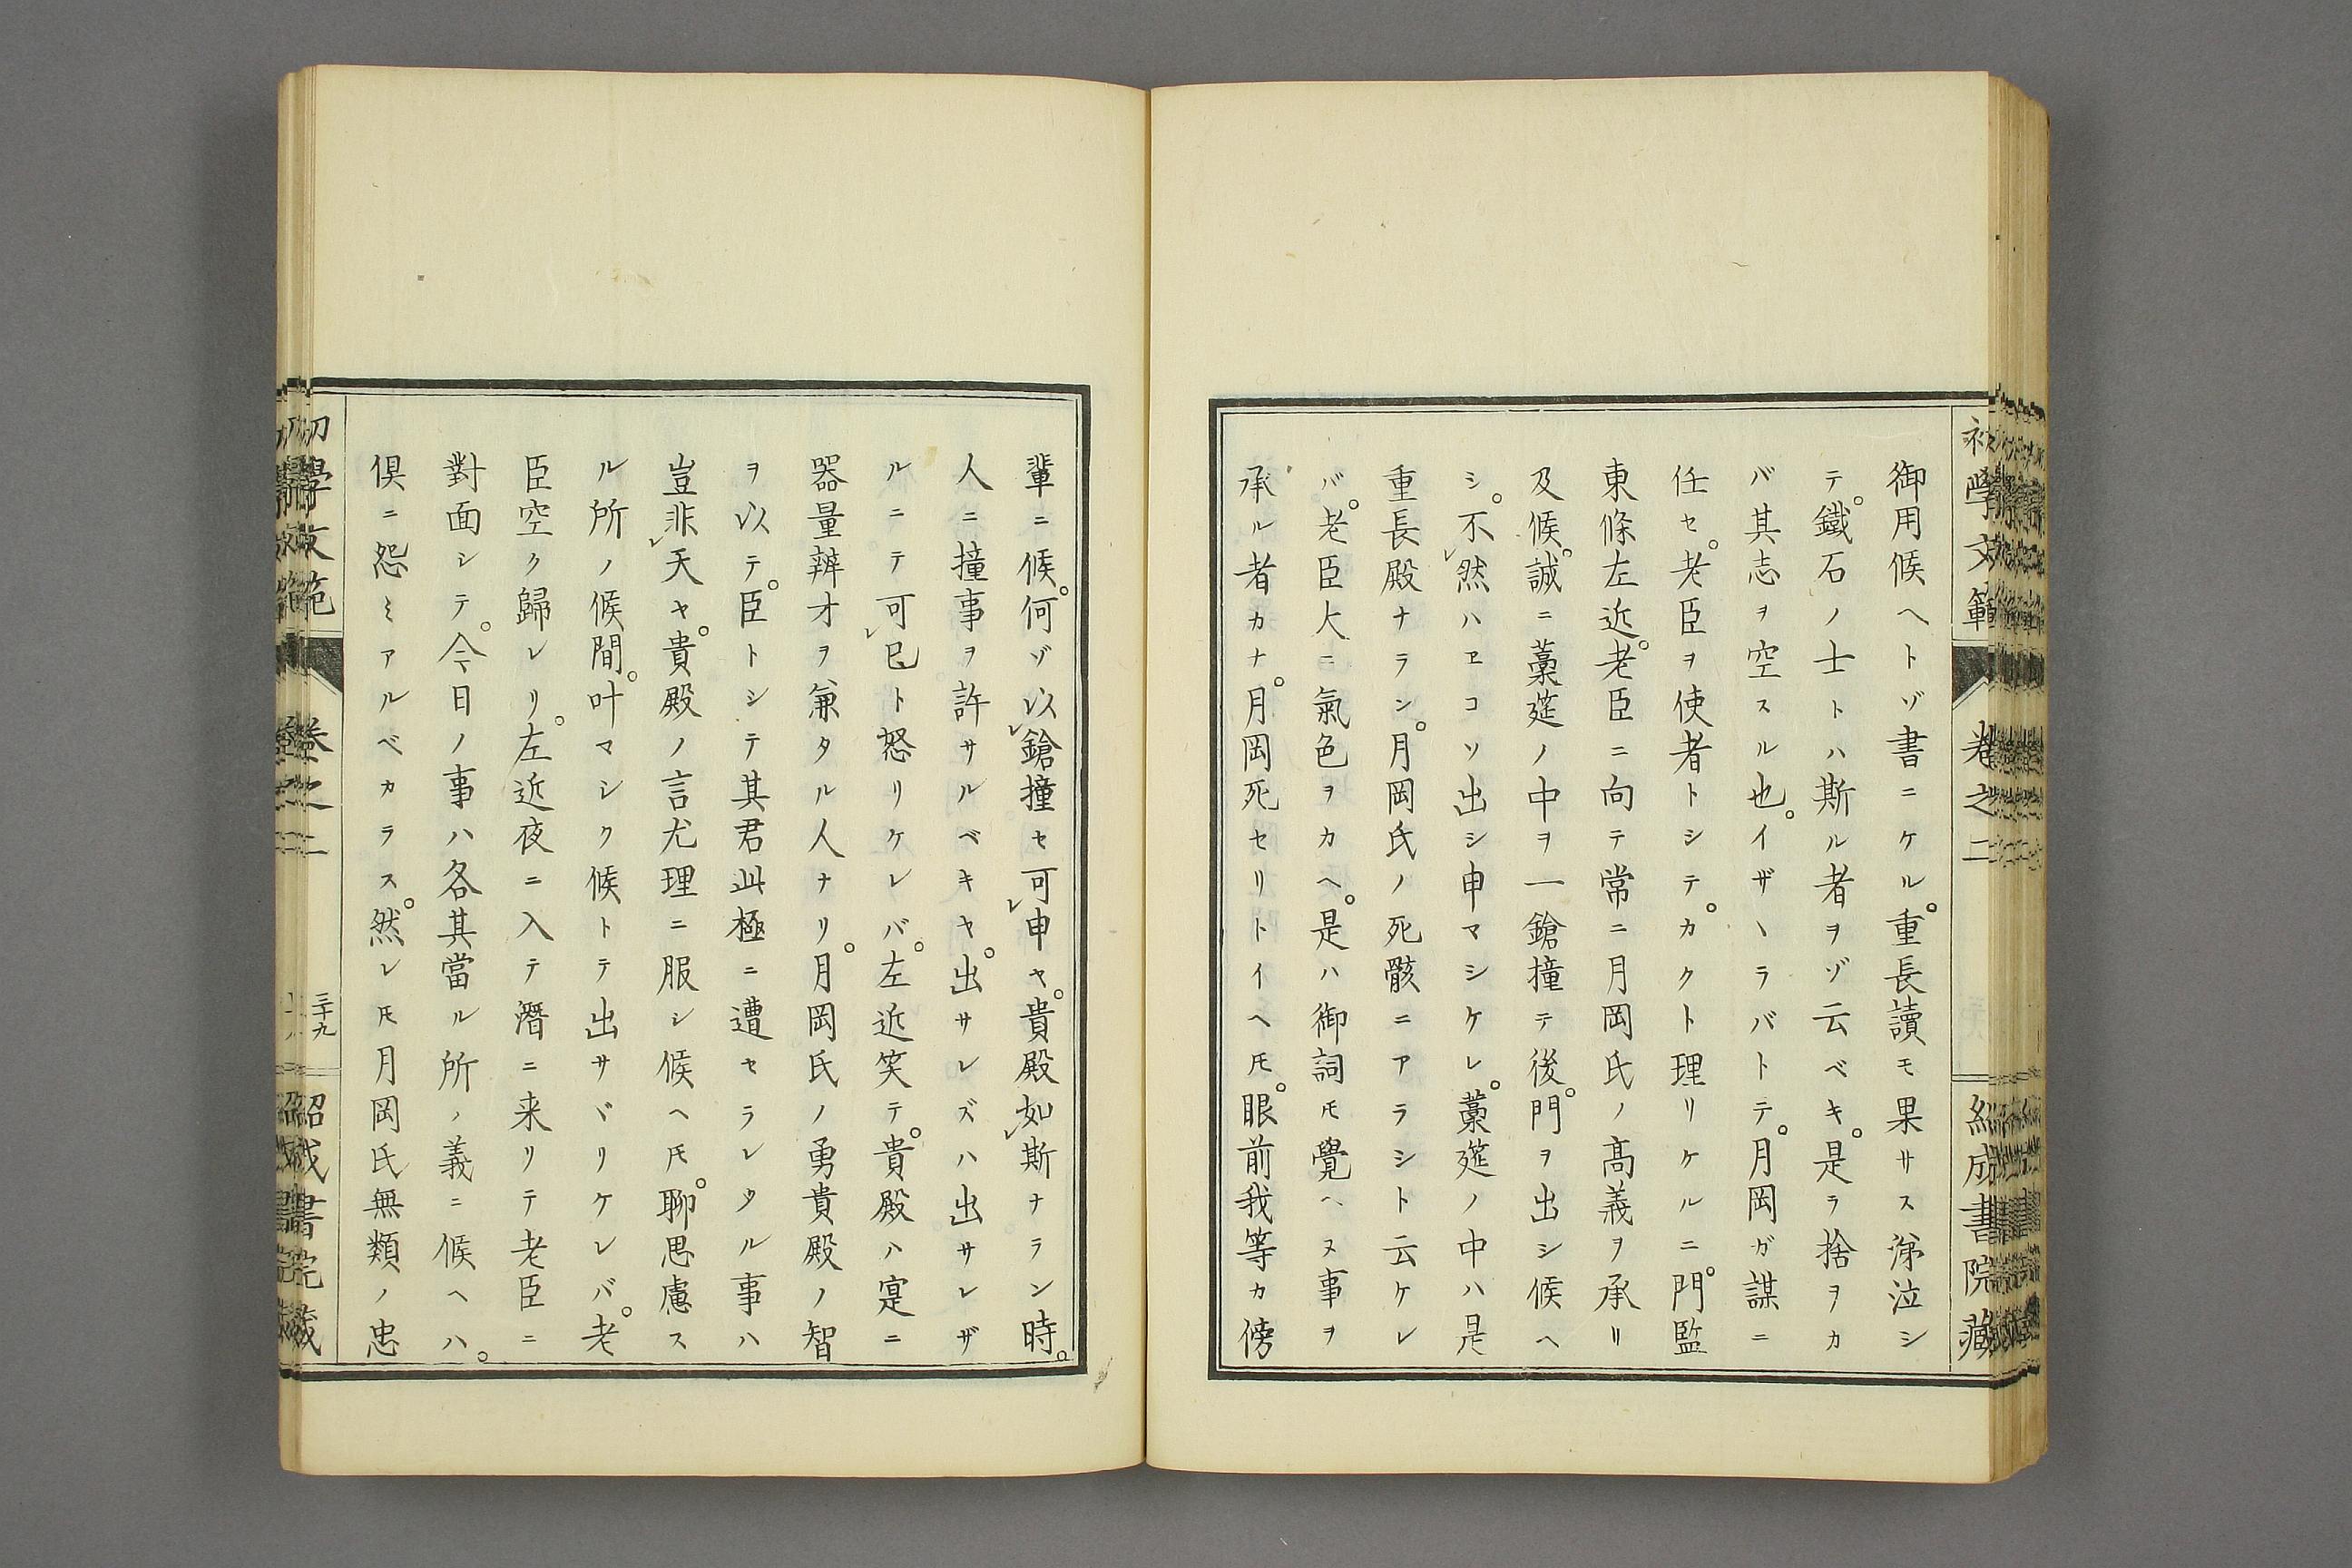 初學文範 卷之二 紹成書院藏
御用候ヘトゾ書ニケル。重長讀モ果サス涕泣シ
テ。鐵石ノ士トハ斯ル者ヲゾ云ベキ。是ラ捨ヲカ
バ其志ヲ空スル也。イザヽラバトテ。月岡ガ謀ニ
任セ。老臣ヲ使者トシテ。カクト理リケルニ。門監
東條左近。老臣ニ向テ常ニ月岡氏ノ髙義ヲ承リ
及候。誠ニ藁筵ノ中ヲ一鎗撞テ後。門ヲ出シ候ヘ
シ。不レ然ハヱコソ出シ申マシケレ。藁筵ノ中ハ是
重長殿ナラン。月岡氏ノ死骸ニアラシト云ケレ
バ。老臣大ニ氣色ヲカヘ。是ハ御詞𪜈覺ヘヌ事ヲ
承ル者カナ。月岡死セリトイヘ𪜈。眼前我等カ傍
輩ニ候。何ゾ以レ鎗撞セ可レ申ヤ。貴殿如レ斯ナラン時。
人ニ撞事ヲ許サルベキヤ。出サレズハ出サレザ
ルニテ可レ已ト怒リケレバ。左近笑テ。貴殿ハ寔ニ
器量辨才ヲ兼タル人ナリ。月岡氏ノ勇貴殿ノ智
ヲ以テ。臣トシテ其君此極ニ遭セラレタル事ハ
豈非レ天ヤ。貴殿ノ言尤理ニ服シ候ヘ𪜈。聊思慮ス
ル所ノ候間。叶マシク候トテ出サヾリケレバ。老
臣空ク歸レリ。左近夜ニ入テ潛ニ来リテ老臣ニ
對面シテ。今日ノ事ハ各其當ル所ノ義ニ候ヘハ。
倶ニ怨ミアルベカラス。然レ𪜈月岡氏無類ノ忠
初學文範 卷之二 三十九 紹成書院藏